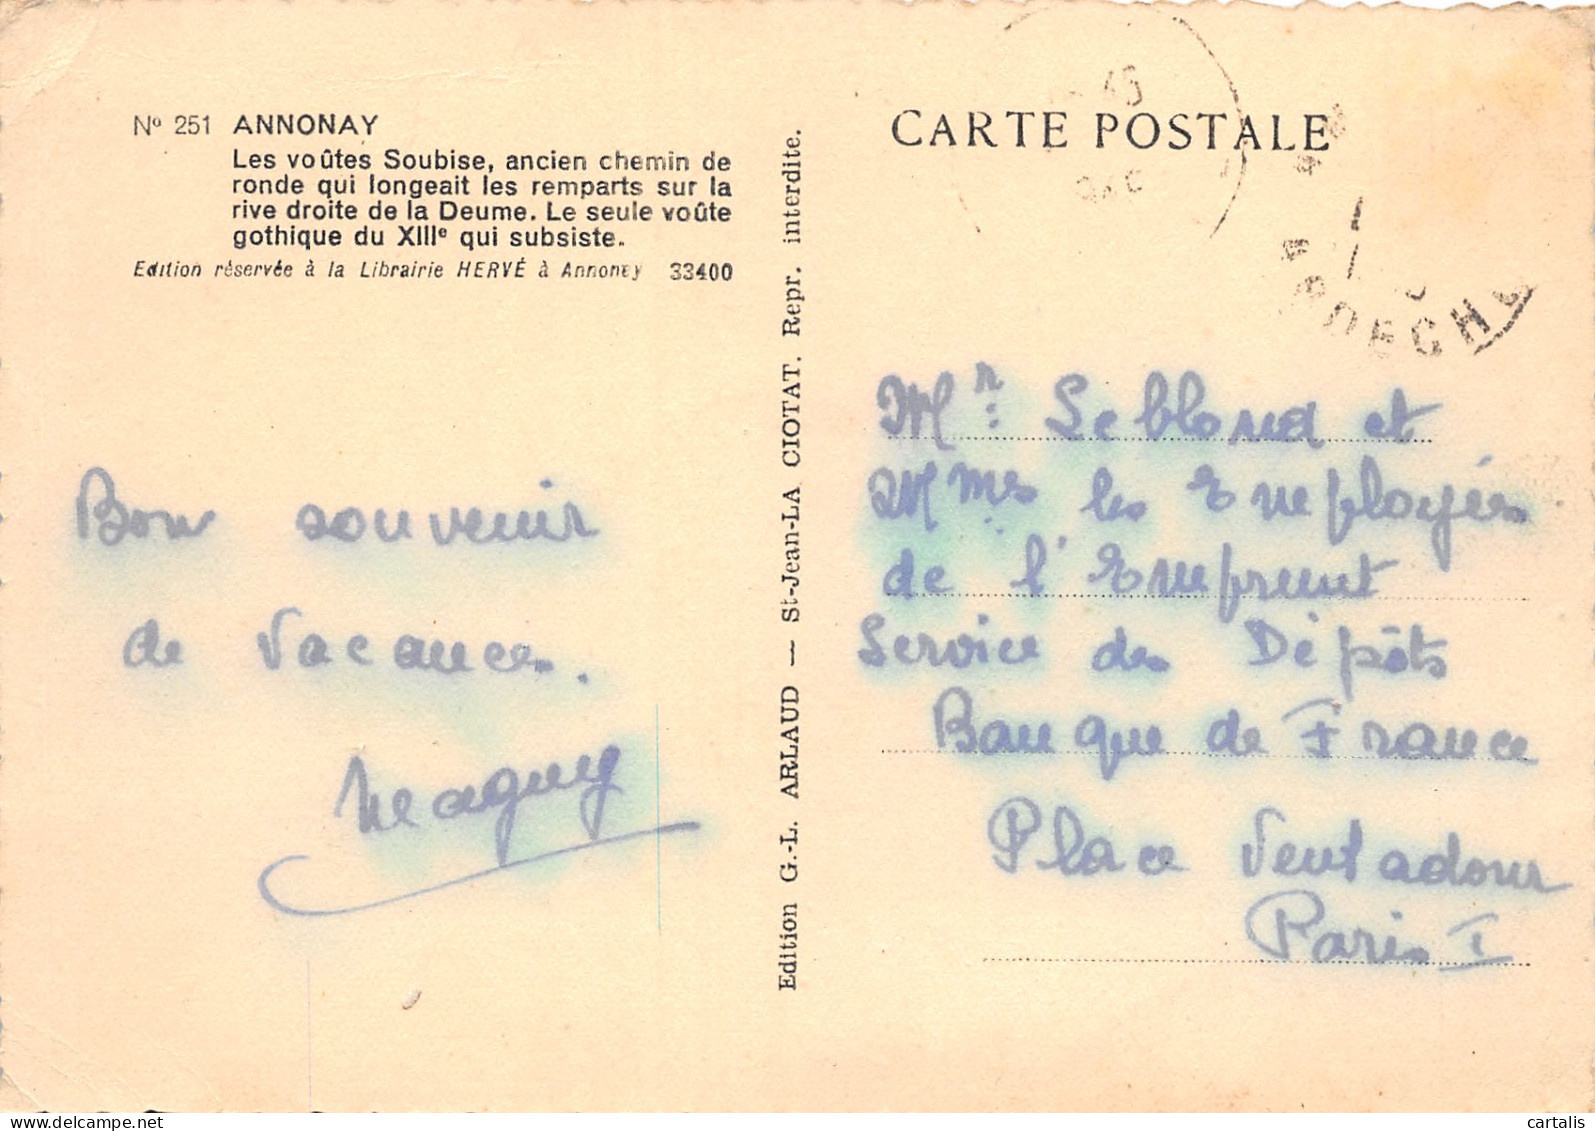 Nº 251 ANNONAY
Les voûtes Soubise, ancien chemin de
ronde qui longeait les remparts sur la
rive droite de la Deume. Le seule voûte
gothique du XIIIe qui subsiste.
Edition réservée à la Librairie HERVÉ à Annonay 33400
Bon souvenir
de Vacances.
Maguy
Edition G.-L. ARLAUD — St-Jean-LA CIOTAT. Repr. interdite.
CARTE POSTALE
ARDECHE
Mr Leblond et
Mmes les Employées
de l'Emprunt
Service des Dépôts
Banque de France
Place Ventadour
Paris I
cartalis